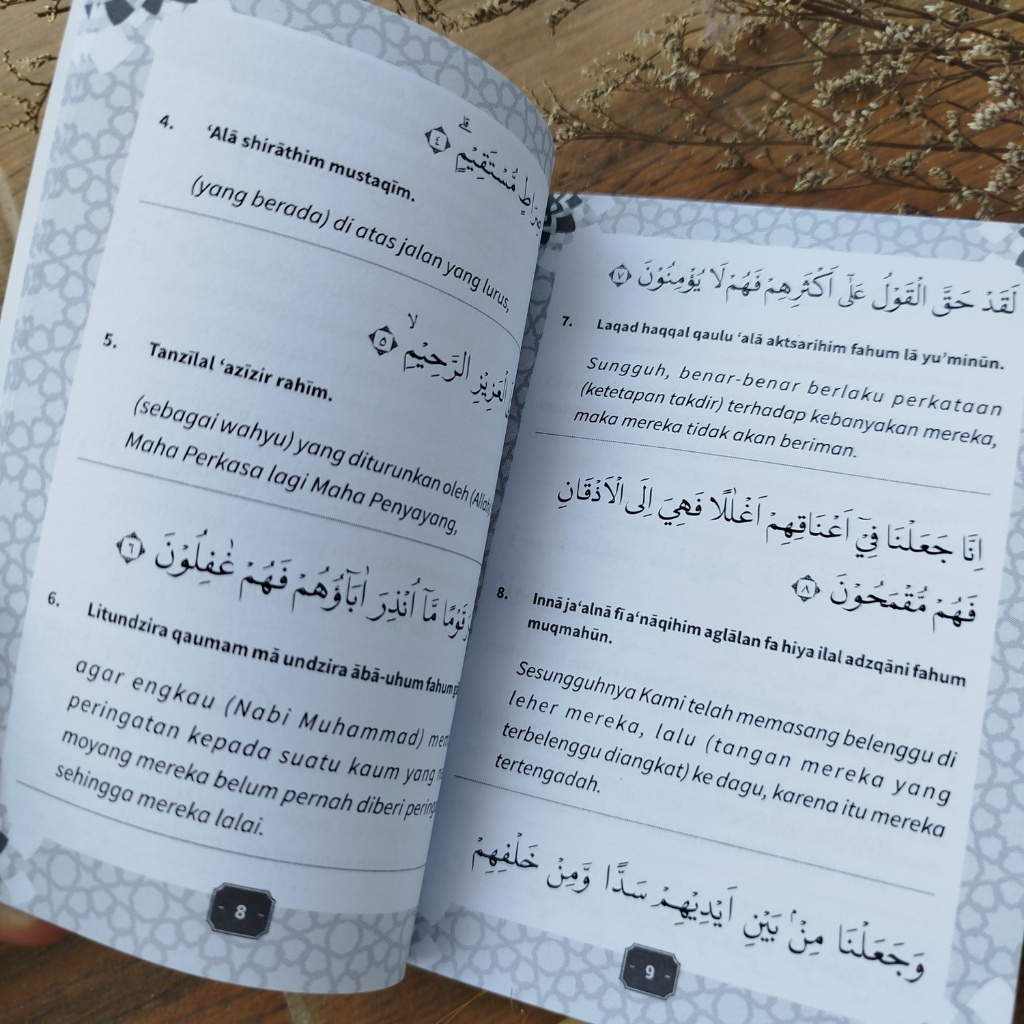 مُّسْتَقِيْمٍۗ ٤
4. ‘Alā shirāthim mustaqīm.
(yang berada) di atas jalan yang lurus,
الْعَزِيْزِ الرَّحِيْمِۙ ٥
5. Tanzīlal ‘azīzir rahīm.
(sebagai wahyu) yang diturunkan oleh (Allah)
Maha Perkasa lagi Maha Penyayang,
قَوْمًا مَّآ اُنْذِرَ اٰبَاۤؤُهُمْ فَهُمْ غٰفِلُوْنَ ٦
6. Litundzira qaumam mā undzira ābā-uhum fahum
agar engkau (Nabi Muhammad)
peringatan kepada suatu kaum yang
moyang mereka belum pernah diberi
sehingga mereka lalai.
8
لَقَدْ حَقَّ الْقَوْلُ عَلٰٓى اَكْثَرِهِمْ فَهُمْ لَا يُؤْمِنُوْنَ ٧
7. Laqad haqqal qaulu ‘alā aktsarihim fahum lā yu’minūn.
Sungguh, benar-benar berlaku perkataan
(ketetapan takdir) terhadap kebanyakan mereka,
maka mereka tidak akan beriman.
اِنَّا جَعَلْنَا فِيْٓ اَعْنَاقِهِمْ اَغْلٰلًا فَهِيَ اِلَى الْاَذْقَانِ
فَهُمْ مُّقْمَحُوْنَ ٨
8. Innā ja‘alnā fī a‘nāqihim aglālan fa hiya ilal adzqāni fahum
muqmahūn.
Sesungguhnya Kami telah memasang belenggu di
leher mereka, lalu (tangan mereka yang
terbelenggu diangkat) ke dagu, karena itu mereka
tertengadah.
وَجَعَلْنَا مِنْۢ بَيْنِ اَيْدِيْهِمْ سَدًّا وَّمِنْ خَلْفِهِمْ
9